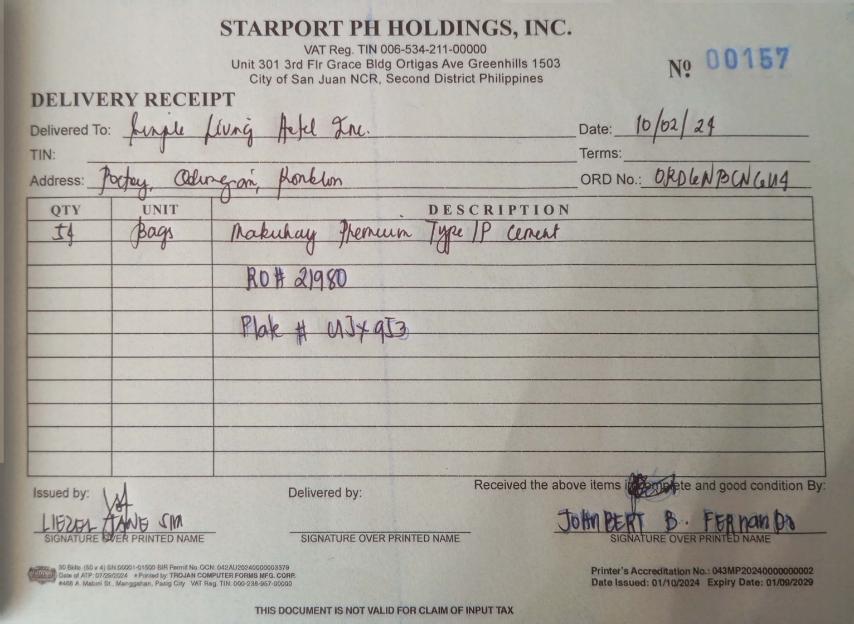 STARPORT PH HOLDINGS, INC.
VAT Reg. TIN 006-534-211-00000
Unit 301 3rd Flr Grace Bldg Ortigas Ave Greenhills 1503
City of San Juan NCR, Second District Philippines
Nº 00157
DELIVERY RECEIPT
Delivered To: Simple Living Inc.
Date: 10/02/24
TIN:
Terms:
Address: Poctoy, Odiongan, Romblon
ORD No.:
QTY UNIT DESCRIPTION
54 Bags Makuhay Premium Type 1P Cement
RO# 21980
Plate # UJX 953
Issued by:
Delivered by:
Received the above items in complete and good condition By:
LIEZEL JANE SM
JOHNBERT B. FERNANDO
SIGNATURE OVER PRINTED NAME
SIGNATURE OVER PRINTED NAME
SIGNATURE OVER PRINTED NAME
50 Bklts. (50 x 4) SN:00001-01500 BIR Permit No. OCN: 042AU20240000003379
Date of ATP: 07/29/2024 Printed by: TROJAN COMPUTER FORMS MFG. CORP.
#468 A. Mabini St., Manggahan, Pasig City VAT Reg. TIN: 000-238-957-00000
Printer's Accreditation No.: 043MP20240000000002
Date Issued: 01/10/2024 Expiry Date: 01/09/2029
THIS DOCUMENT IS NOT VALID FOR CLAIM OF INPUT TAX